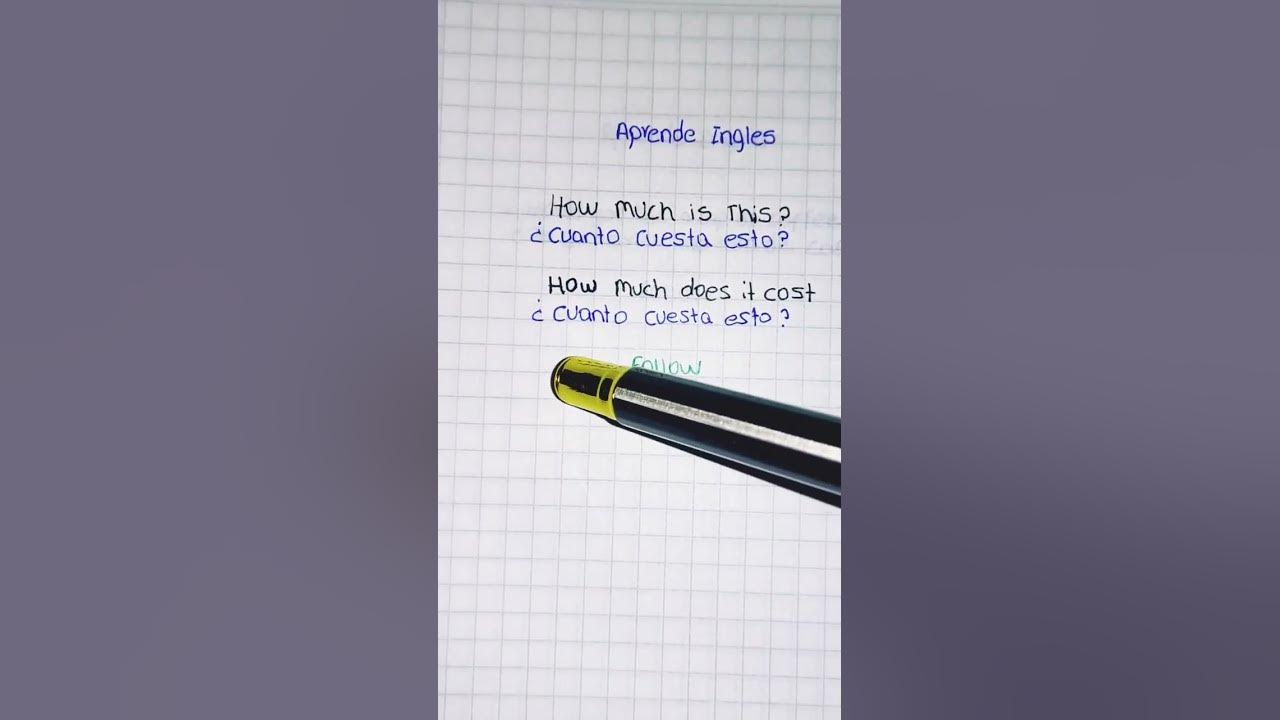 Aprende Ingles
How much is This?
¿Cuanto cuesta esto?
How much does it cost
¿Cuanto cuesta esto?
Follow